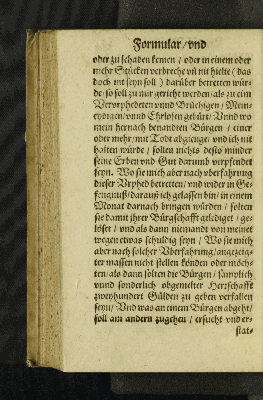 Formular/vnd
oder zu schaden kemen / oder in einem oder
mehr Stücken verbreche vñ nit hielte (das
doch nit seyn soll) darüber betretten wür-
de/ so soll zu mir gericht werden/ als zu eim
Vervrphedeten vnnd Brüchigen / Mein-
eydigen/ vnnd Ehrlosen gebürt/ Vnnd wo
mein hernach benandten Bürgen / einer
oder mehr/ mit Tode abgienge/ vnd ich nit
halten würde / sollen nichts desto minder
seine Erben vnd Gut darumb verpfendet
seyn. Wo sie mich aber nach vberfahrung
dieser Vrphed betretten/ vnd wider in Ge-
fengnuß/ darauß ich gelassen bin/ in einem
Monat darnach bringen würden / sollen
sie damit jhrer Bürgschafft gelediget / ge-
löset / vnd als dann niemandt von meinet
wegen etwas schuldig seyn / Wo sie mich
aber nach solcher Vberfahrung/ angezeig-
ter massen nicht stellen könden oder möch-
ten/ als dann solten die Bürgen / sämptlich
vnnd sonderlich obgemelter Herrschafft
zweyhundert Gülden zu geben verfallen
seyn/ Vnd was an einem Bürgen abgeht/
soll am andern zugehen / ersucht vnd er-
stat-